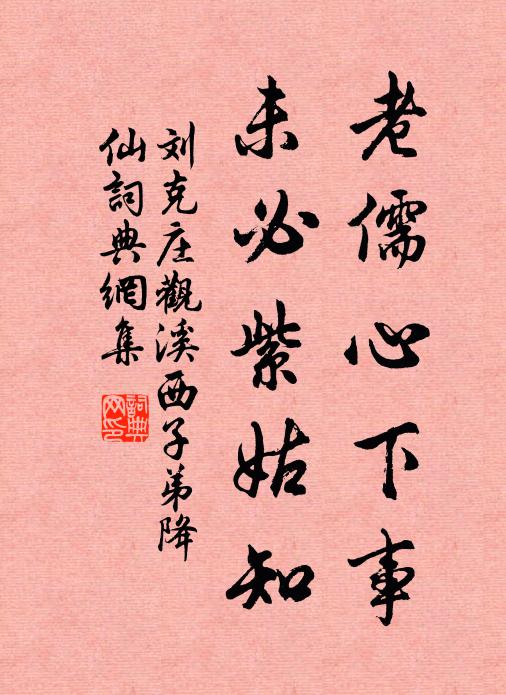 老儒心下事
未必紫姑知
刘克庄觀溪西子弟降
仙詞典網集
詞典
网印